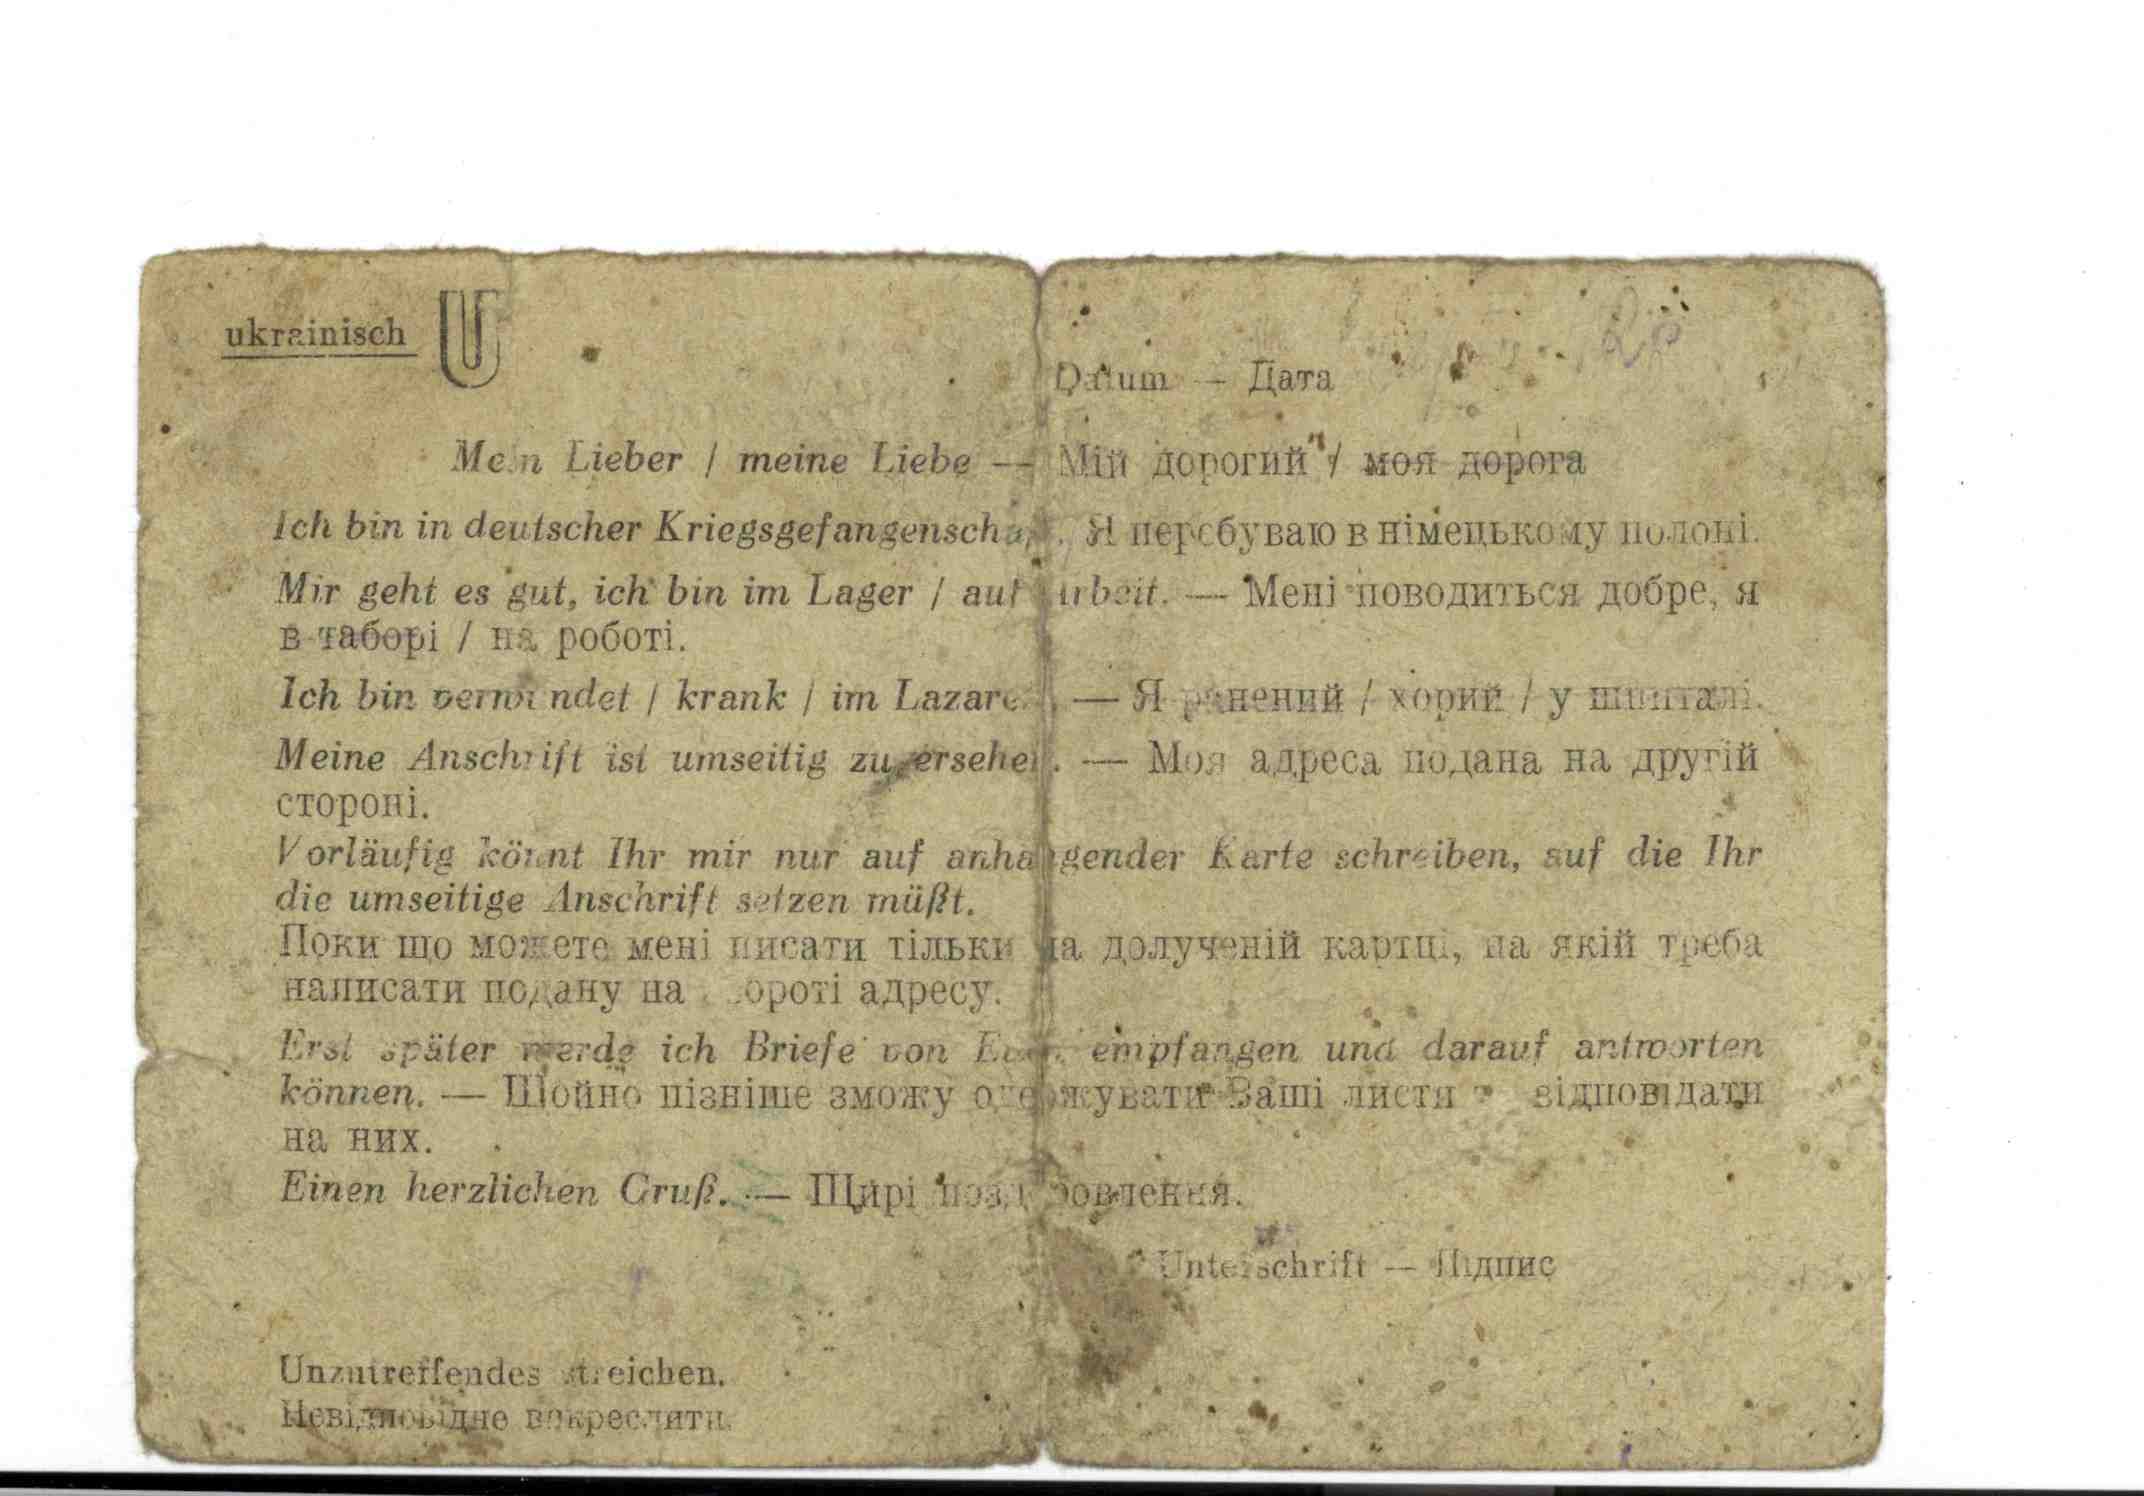 ukrainisch U
Datum — Дата
Mein Lieber / meine Liebe — Мій дорогий / моя дорога
Ich bin in deutscher Kriegsgefangenschaft. Я перебуваю в німецькому полоні.
Mir geht es gut, ich bin im Lager / auf Arbeit. — Мені поводиться добре, я
в таборі / на роботі.
Ich bin verwundet / krank / im Lazarett. — Я ранений / хорий / у шпиталі.
Meine Anschrift ist umseitig zu ersehen. — Моя адреса подана на другій
стороні.
Vorläufig könnt Ihr mir nur auf anhängender Karte schreiben, auf die Ihr
die umseitige Anschrift setzen müßt.
Поки що можете мені писати тільки на долученій картці, на якій треба
написати подану на звороті адресу.
Erst später werde ich Briefe von Euch empfangen und darauf antworten
können. — Щойно пізніше зможу одержувати Ваші листи відповідати
на них.
Einen herzlichen Gruß. — Щирі поздоровлення.
Unterschrift — Підпис
Unzutreffendes streichen.
Невідповідне викреслити.